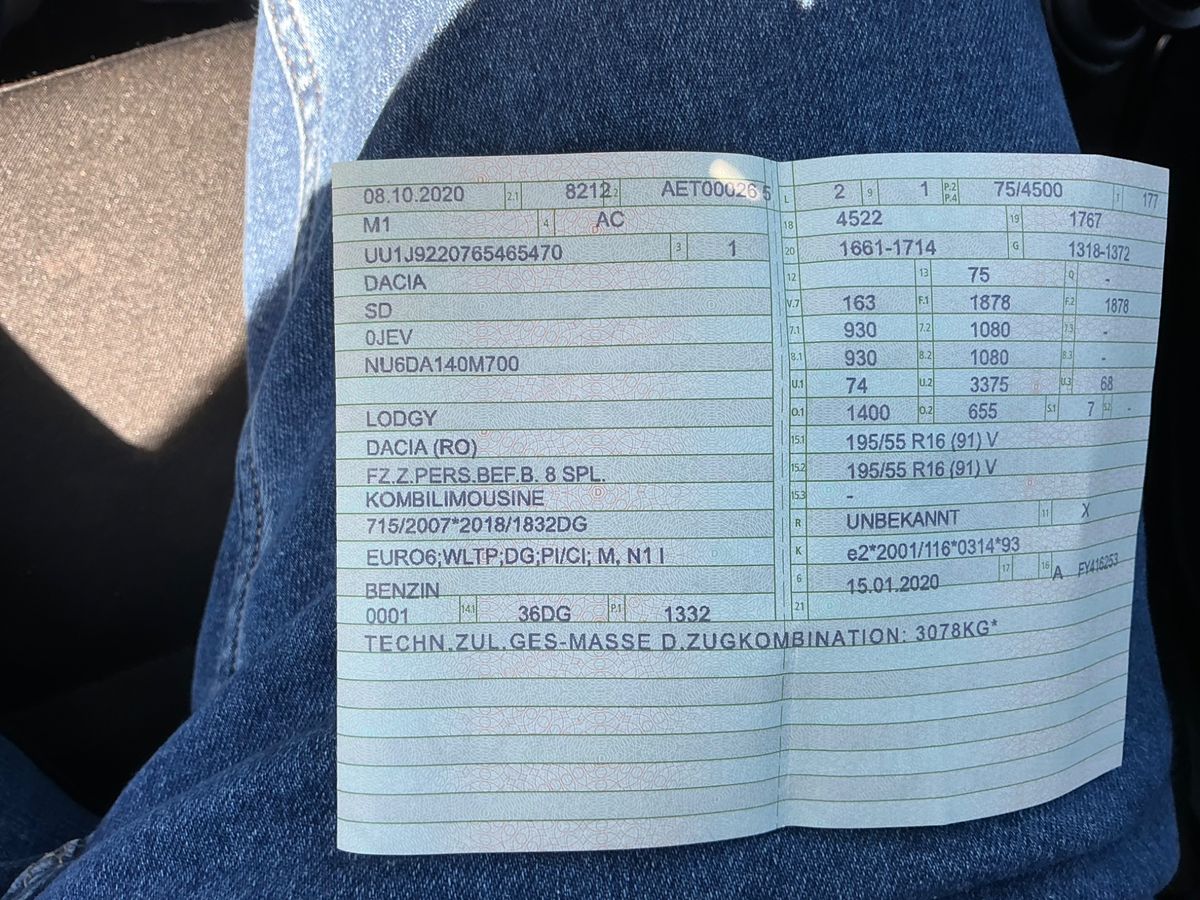 08.10.2020 2.1 8212 2.2 AET00026 5 L 2 9 1 P.2 P.4 75/4500 T 177
M1 4 AC 18 4522 19 1767
UU1J9220765465470 3 1 20 1661-1714 G 1318-1372
DACIA 12 13 75 Q -
SD V.7 163 F.1 1878 F.2 1878
0JEV 7.1 930 7.2 1080 7.3 -
NU6DA140M700 8.1 930 8.2 1080 8.3 -
U.1 74 U.2 3375 U.3 68
LODGY O.1 1400 O.2 655 S.1 7 S.2 -
DACIA (RO) 15.1 195/55 R16 (91) V
FZ.Z.PERS.BEF.B. 8 SPL. 15.2 195/55 R16 (91) V
KOMBILIMOUSINE 15.3 -
715/2007*2018/1832DG R UNBEKANNT 11 X
EURO6;WLTP;DG;PI/CI; M, N1 I K e2*2001/116*0314*93
BENZIN 6 15.01.2020 17 16 A FY416253
0001 14.1 36DG P.1 1332 21
TECHN.ZUL.GES-MASSE D.ZUGKOMBINATION: 3078KG*